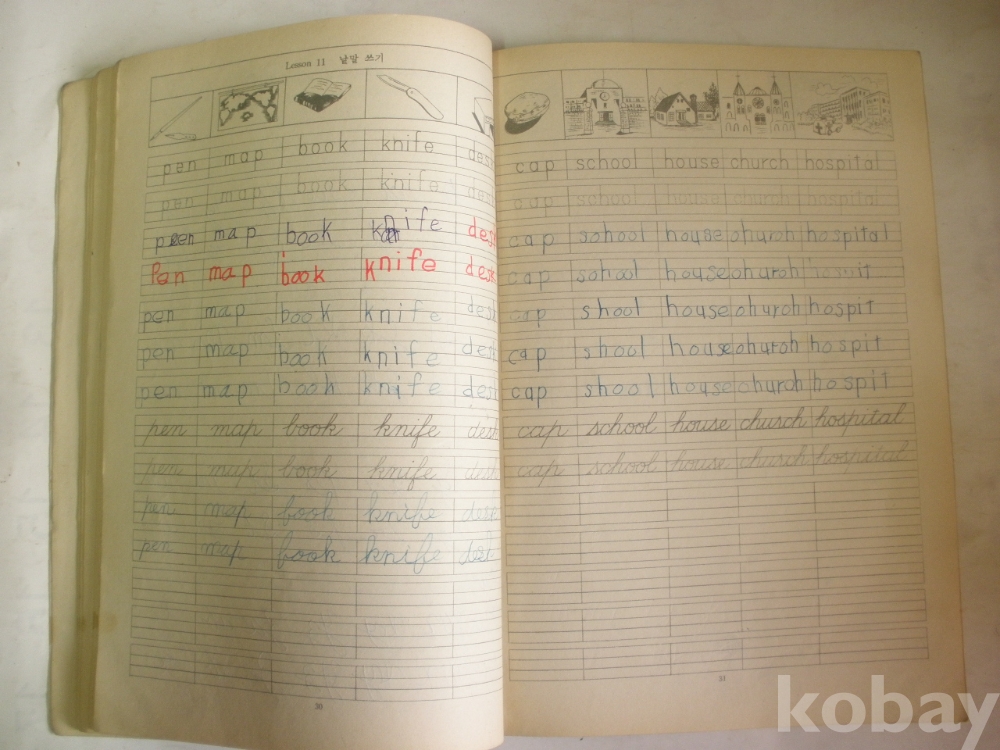 Lesson 11 낱말 쓰기
pen map book knife desk
pen map book knife desk
pen map book knife desk
Pen map book knife desk
pen map book knife desk
pen map book knife desk
pen map book knife desk
pen map book knife desk
pen map book knife desk
pen map book knife desk
pen map book knife desk
30
cap school house church hospital
cap school house church hospital
cap school house church hospital
cap school house church hospit
cap shool house church hospit
cap shool house church hospit
cap shool house church hospit
cap school house church hospital
cap school house church hospital
31
kobay